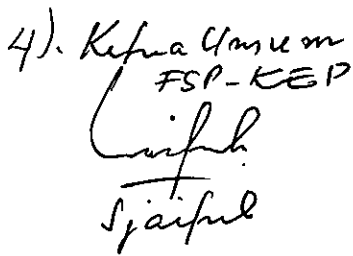 4). Ketua Umum
FSP-KEP
Sjaiful